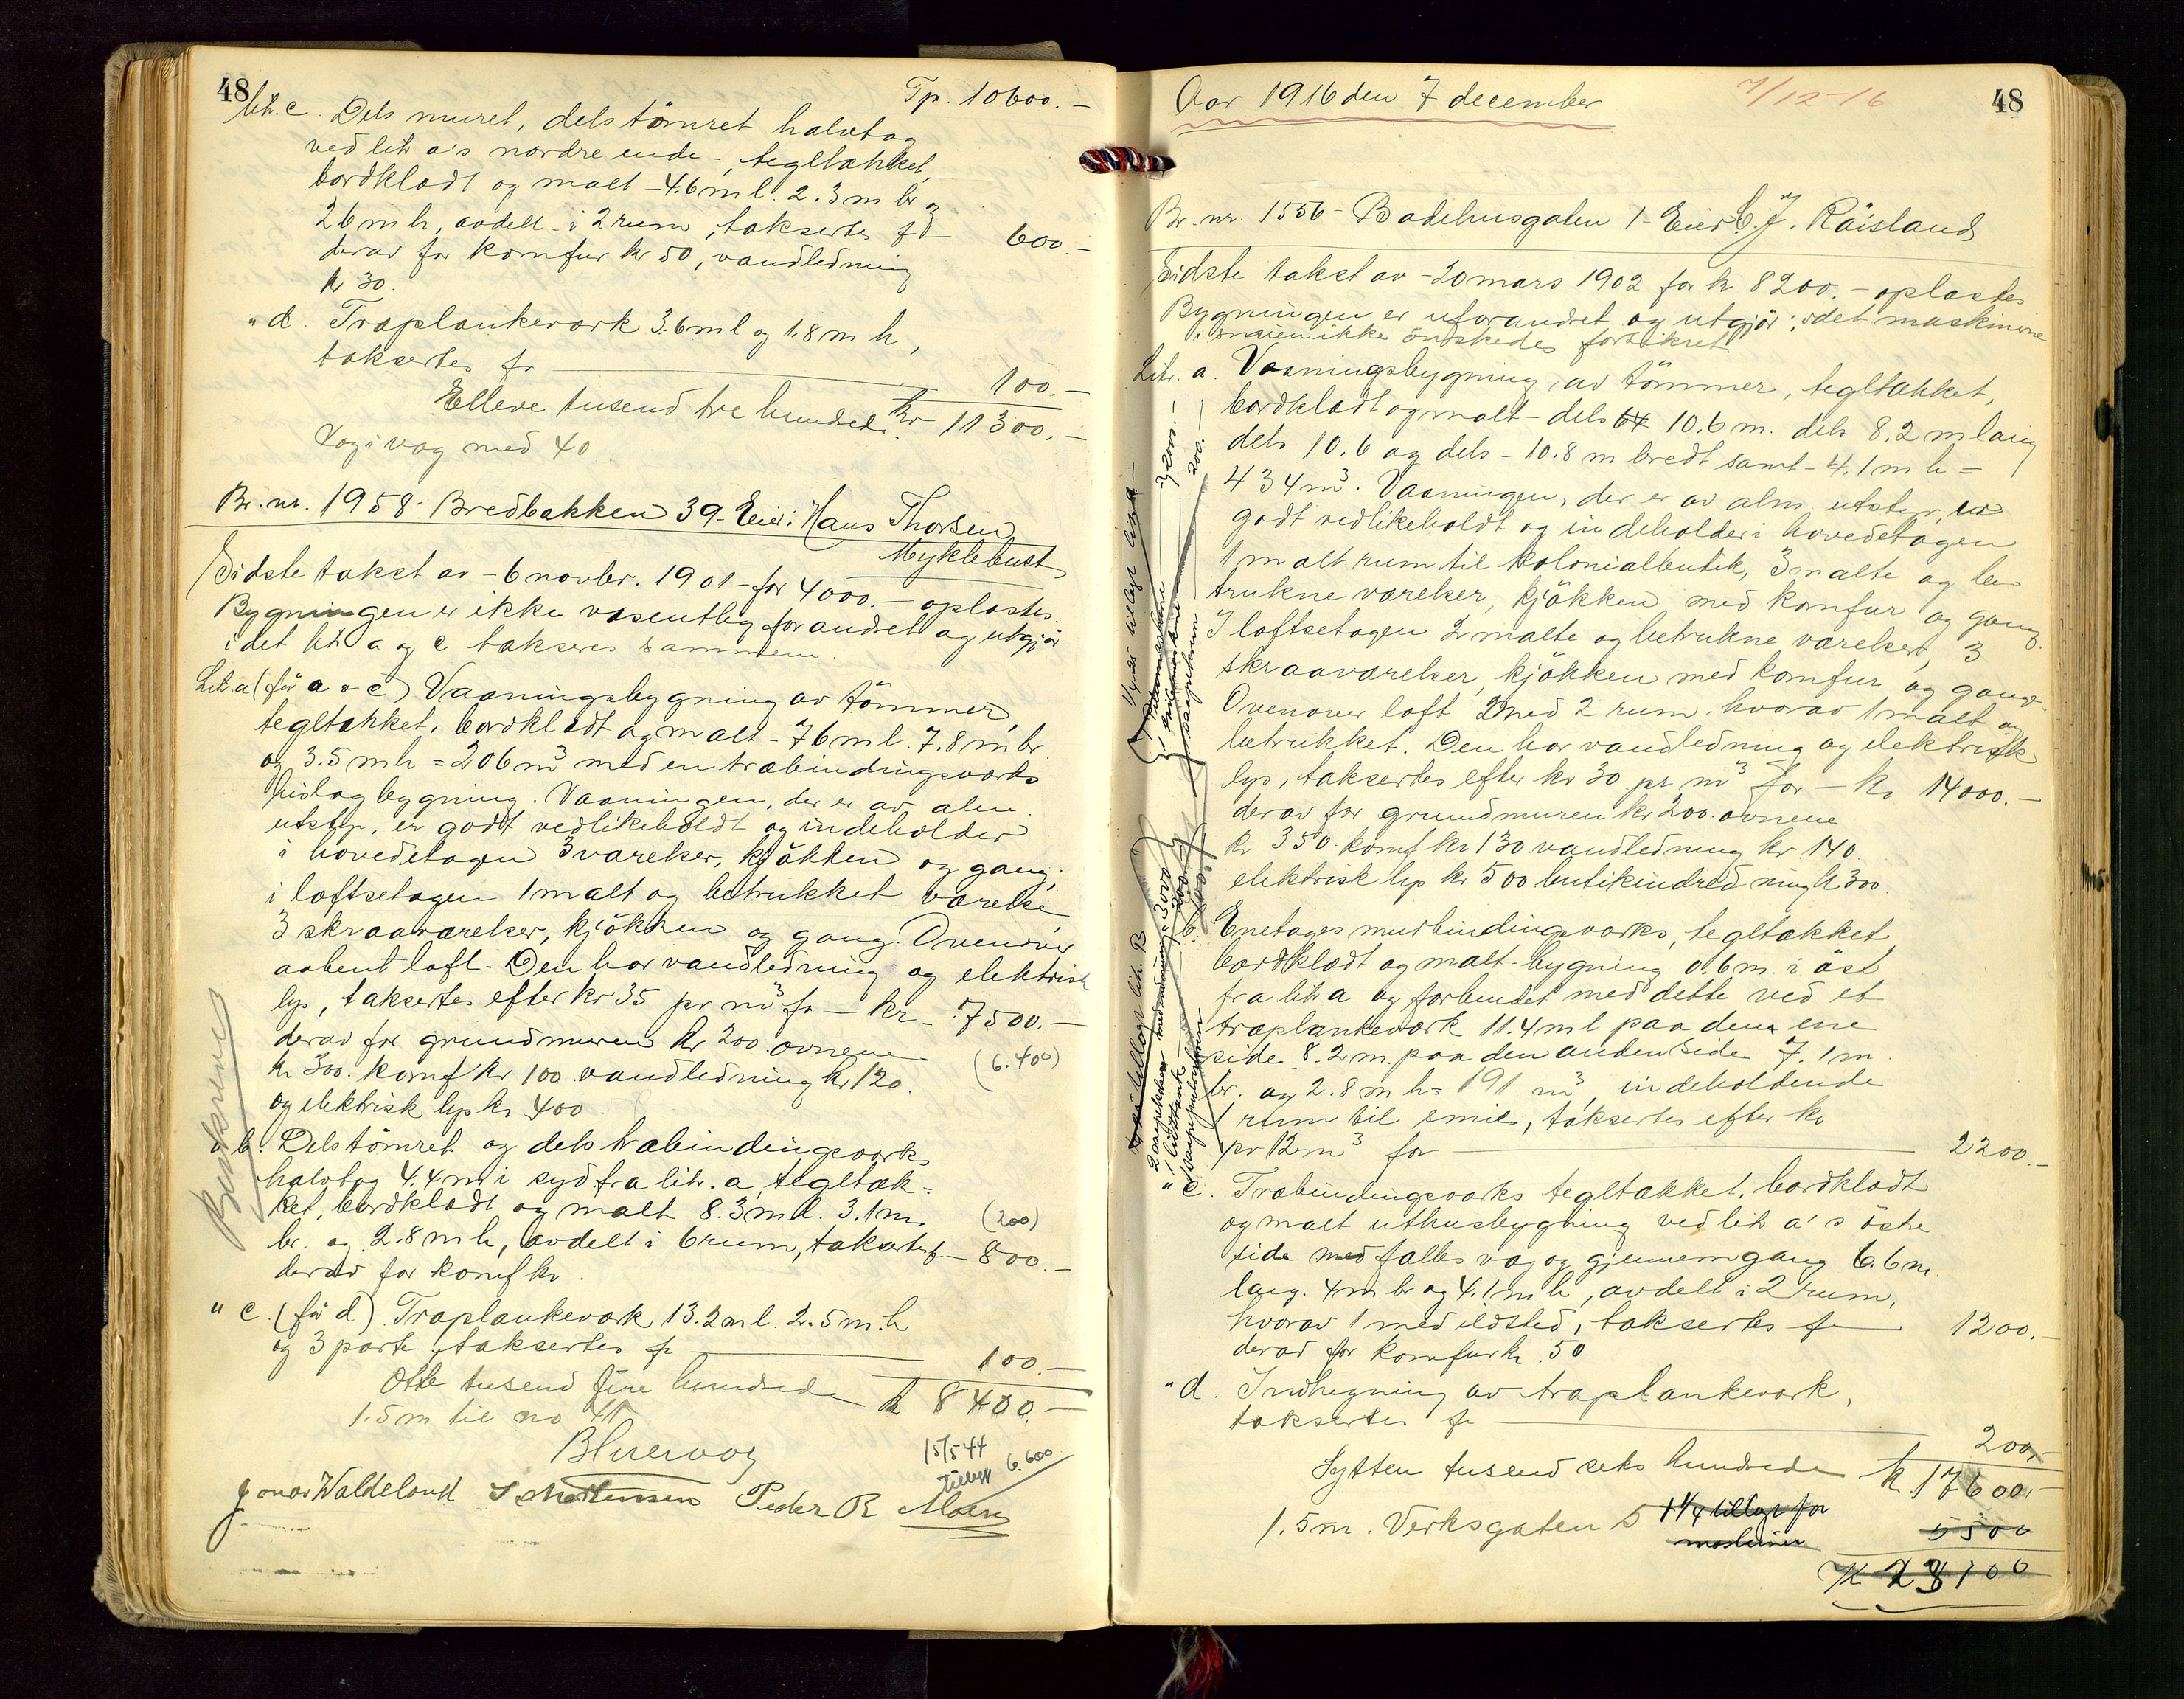 48
Tp. 10600.-
Litr. c. Dels muret, dels tömret halvtag
ved litr a's nordre ende -, tegltækket,
bordklædt og malt - 4.6 m l. 2.3 m br og
2.6 m h, avdelt i 2 rum, taksertes fr - 600.-
derav for komfur kr 50, vandledning
kr 30.
" d. Træplankeverk 3.6 m l og 1.8 m h,
taksertes fr 100.-
Elleve tusend tre hundrede. Kr 11300.-
Log i væg med 40
Br. nr. 1958 - Bredbakken 39 - Eier: Hans Thorsen
Myklebust
Sidste takst av - 6 novbr. 1901 - for 4000.- oplæstes.
Bygningen er ikke væsentlig forandret og utgjör
idet litr a og c takseres sammen.
Litr. a (för a & c) Vaaningsbygning av tömmer,
tegltækket, bordklædt og malt - 7.6 m l. 7.8 m br
og 3.5 m h = 206 m³ med en træbindingsverks
bislag bygning. Vaaningen, der er av alm.
utstyr, er godt vedlikeholdt og indeholder
i hovedetagen 3 værelser, kjökken og gang;
i loftsetagen 1 malt og betrukket værelse
3 skraaværelser, kjökken og gang. Ovenover
aabent loft. Den har vandledning og elektrisk
lys, taksertes efter kr 35 pr m³ fr - kr - 7500.-
derav for grundmuren kr 200. ovnene (6.400)
kr 300. komf kr 100. vandledning kr 120.
og elektrisk lys kr 400.
" b. Dels tömret og dels træbindingsverks
halvtag 4.4 m i syd fra litr. a, tegltæk-
ket, bordklædt og malt 8.3 m l. 3.1 m (200)
br. og 2.8 m h, avdelt i 6 rum, taksertes fr - 800.-
derav for komf kr.
" c. (för d) Træplankeverk 13.2 m l. 2.5 m. h
og 3 porte, taksertes fr 100.-
Otte tusend fire hundrede kr 8400.-
1.5 m til no 41
15/5 44
tillegg 6.600
Jonas Waldeland S. Mortensen Peder R Moen
48
Aar 1916 den 7 december
7/12-16
Br. nr. 1556 - Badehusgaten 1 - Eier: C. J. Räisland
Sidste takst av - 20 mars 1902 for kr 8200.- oplæstes
Bygningen er uforandret og utgjör; idet maskinerne
i smien ikke önskedes forsikret
Litr. a. Vaaningsbygning av tömmer, tegltækket,
bordklædt og malt - dels 10.6 m. dels 8.2 m lang
dels 10.6 og dels - 10.8 m bredt samt - 4.1 m h =
434 m³. Vaaningen, der er av alm. utstyr, er
godt vedlikeholdt og indeholder i hovedetagen
1 malt rum til kolonialbutik, 3 malte og be-
trukne værelser, kjökken med komfur og gang.
I loftsetagen 2 malte og betrukne værelser, 3
skraaværelser, kjökken med komfur og gang.
Ovenover loft med 2 rum, hvorav 1 malt og
betrukket. Den har vandledning og elektrisk
lys, taksertes efter kr 30 pr m³ for - kr 14000.-
derav for grundmuren kr 200. ovnene
kr 350. komf kr 130 vandledning kr. 140.
elektrisk lys kr 500 butikindredning kr 300.
b. Enetages murbindingsverks, tegltækket,
bordklædt og malt bygning 0.6 m. i öst
fra litr a og forbundet med dette ved et
træplankeverk 11.4 m l paa den ene
side 8.2 m paa den anden side 7.1 m.
br. og 2.8 m h = 191 m³, indeholdende
1 rum til smie, taksertes efter kr
pr 12 m³ for 2200.-
" c. Træbindingsverks tegltækket, bordklædt
og malt uthusbygning ved litr a's östre
side med fælles væg og gjennemgang 6.6 m.
lang. 4 m br og 4.1 m h, avdelt i 2 rum,
hvorav 1 med ildsted, taksertes fr 1200.-
derav for komfur kr. 50
" d. Indhegning av træplankeverk,
taksertes fr 200.-
Sytten tusend seks hundrede kr. 17600.-
1.5 m. Verksgaten 5 1 1/4 tillegg for
maskiner 5500
Kr 23100